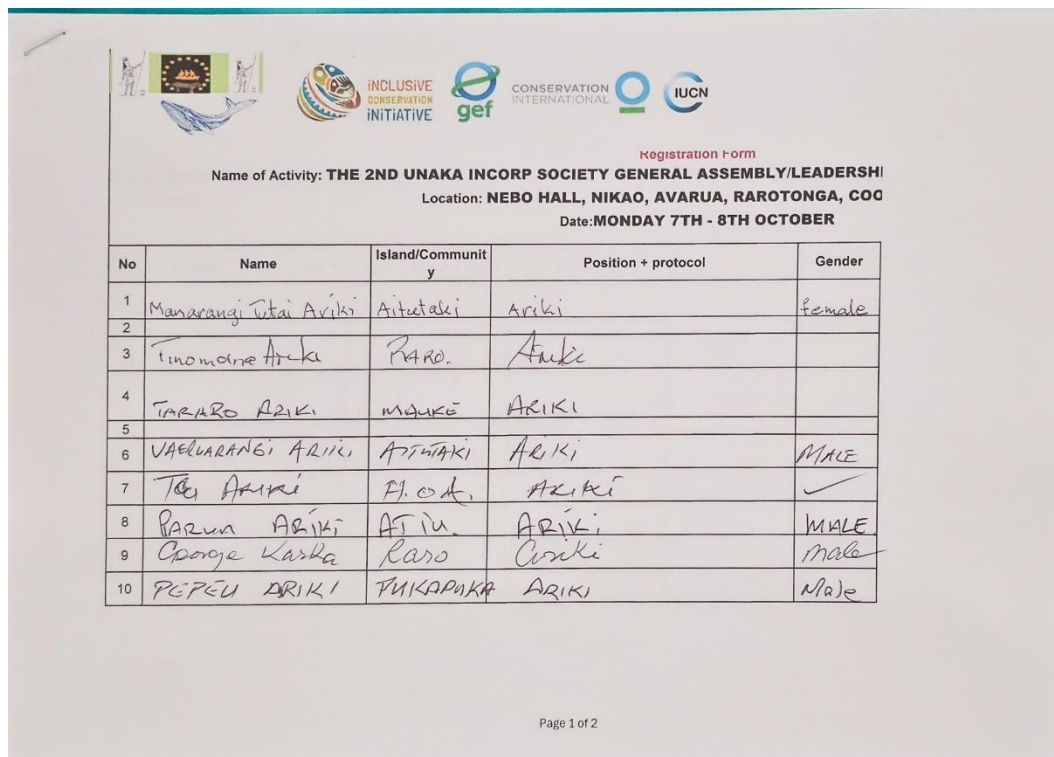 INCLUSIVE
CONSERVATION
INITIATIVE
gef
CONSERVATION
INTERNATIONAL
IUCN
Registration Form
Name of Activity: THE 2ND UNAKA INCORP SOCIETY GENERAL ASSEMBLY/LEADERSHI
Location: NEBO HALL, NIKAO, AVARUA, RAROTONGA, COO
Date:MONDAY 7TH - 8TH OCTOBER
No Name Island/Communit Position + protocol Gender
y
1 Manarangi Tutai Ariki Aitutaki Ariki female
2
3 Ariki RARO. Ariki
4 TARARO ARIKI MAUKE ARIKI
5
6 VAERUARANGI ARIKI AITUTAKI ARIKI MALE
7 ARIKI ARIKI
8 PARUA ARIKI ATIU. ARIKI MALE
9 George Raro ariki male
10 PEPEU ARIKI PUKAPUKA ARIKI Male
Page 1 of 2